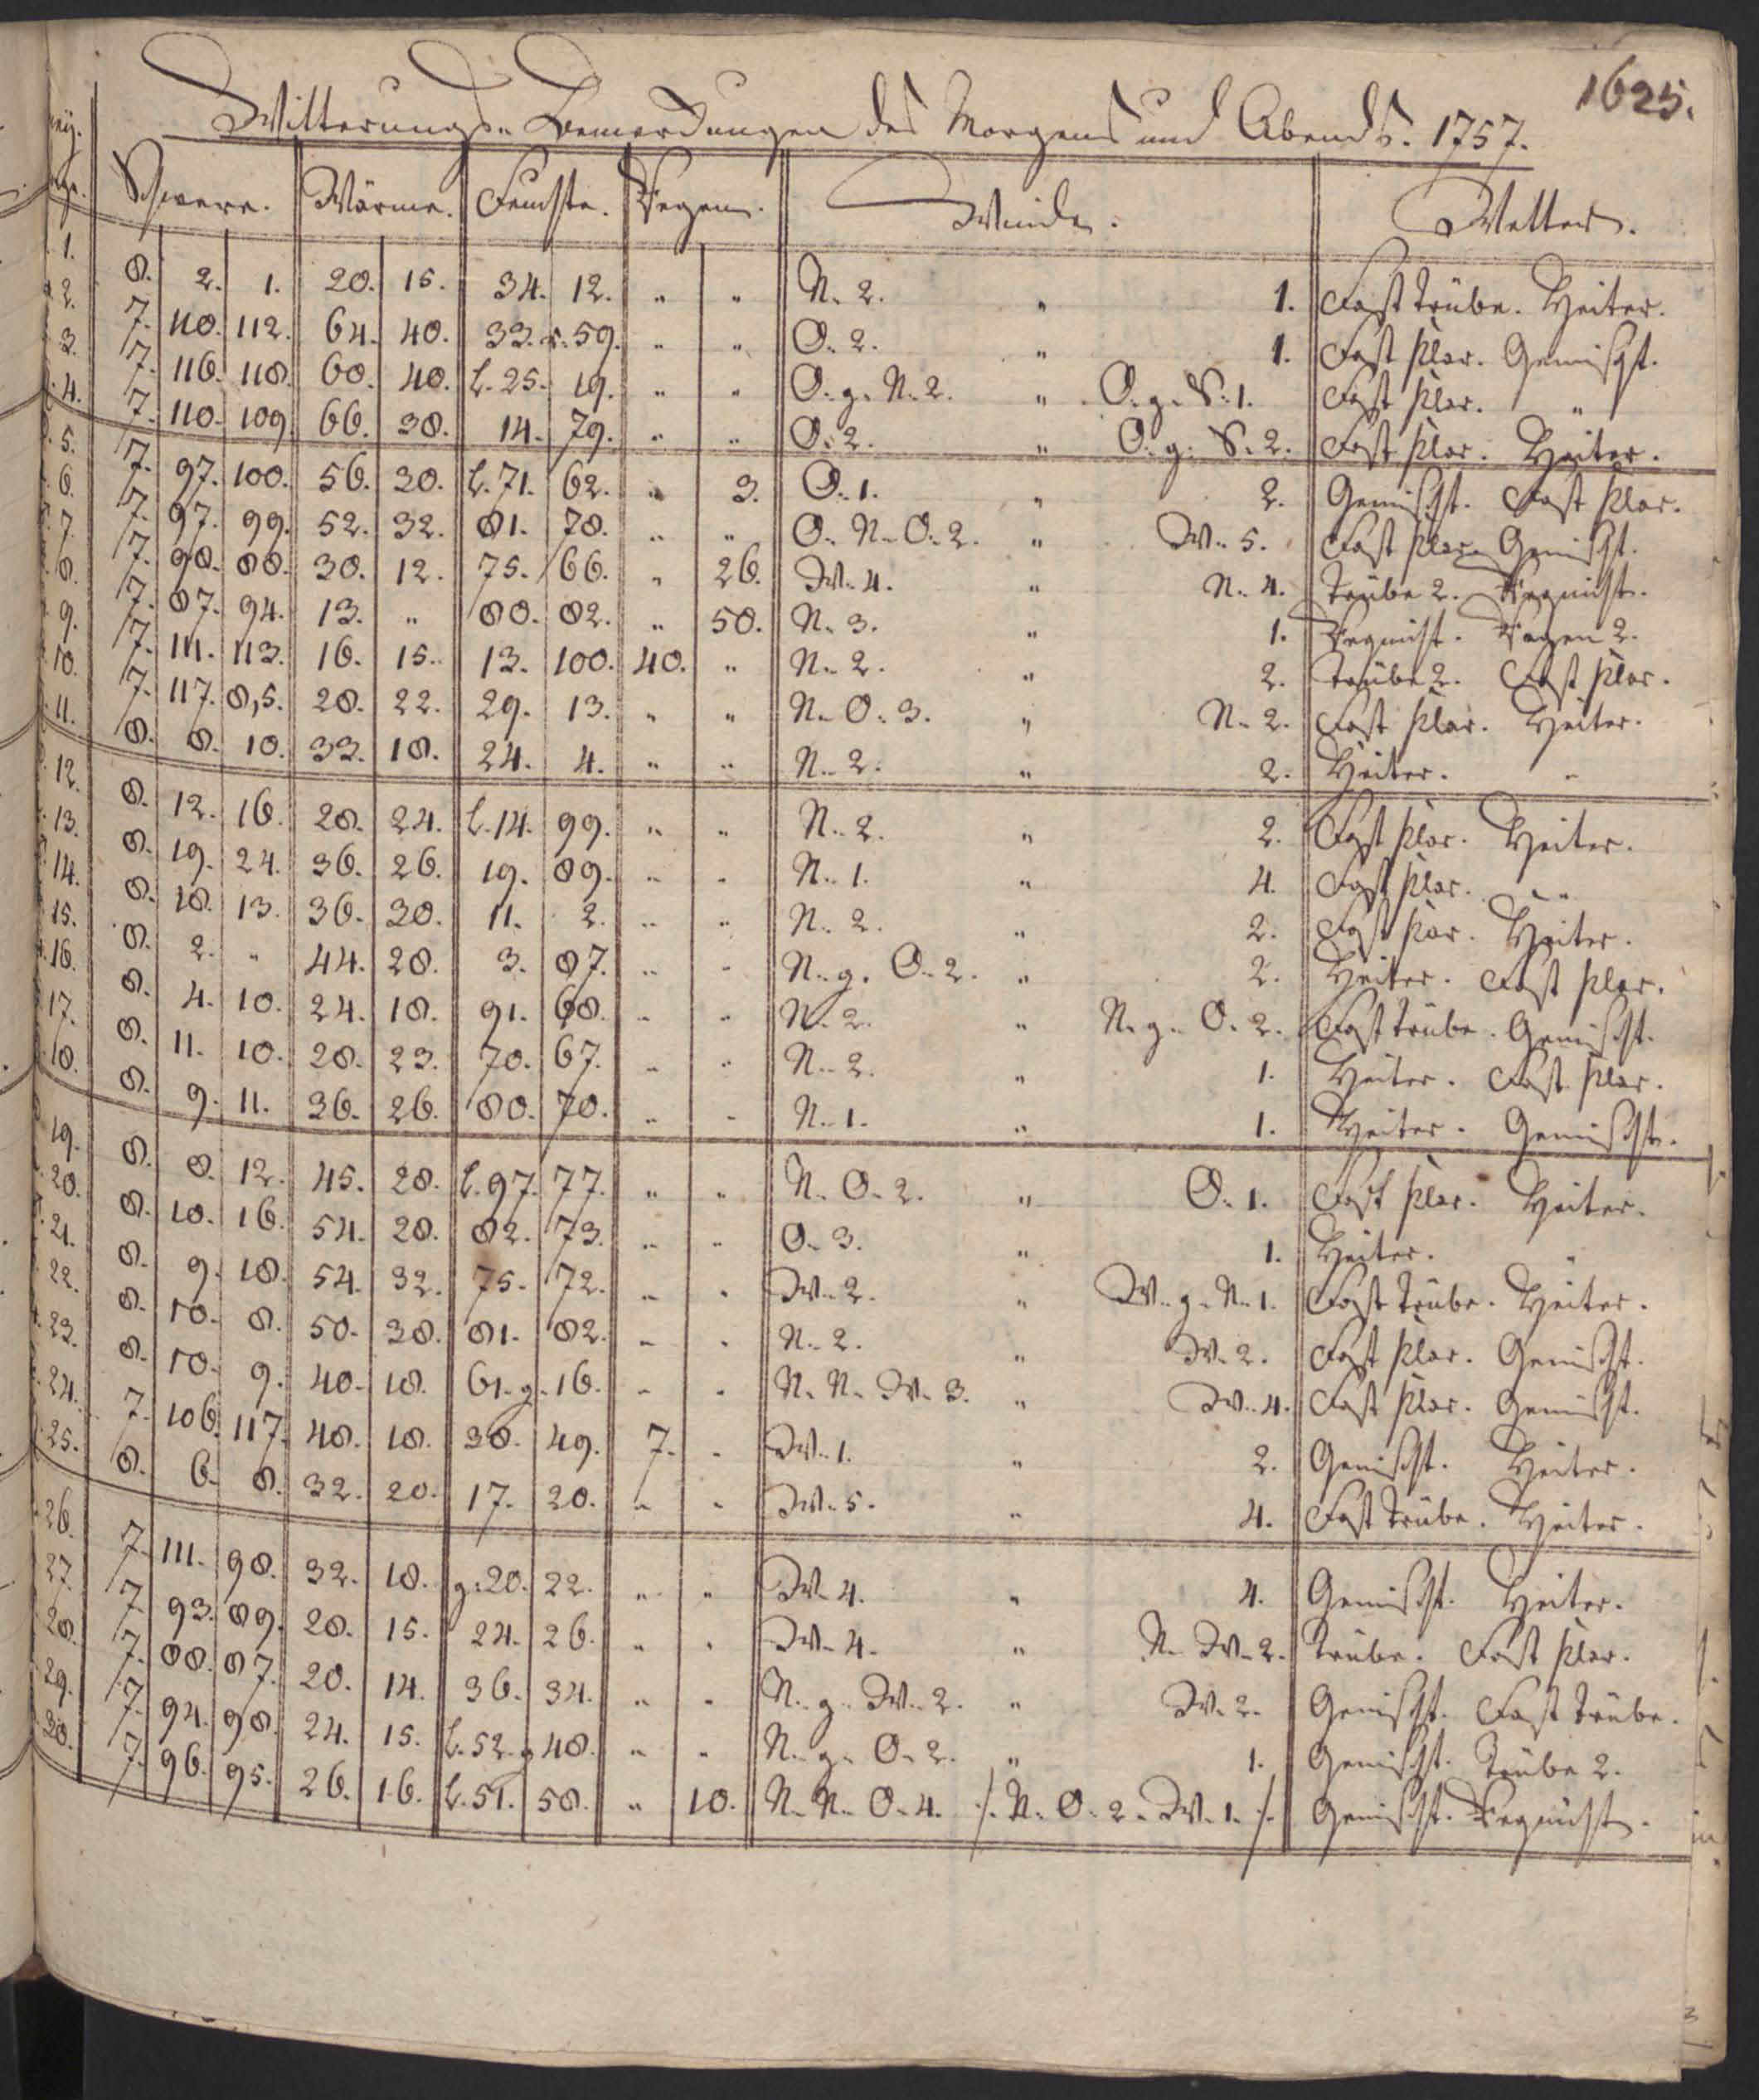 1625.
Witterungs-Bemerckungen des Morgens und Abends. 1757.
Schwere. Wärme. Feuchte. Regen. Winde. Wetter.
1. 8. 2. 1. 20. 15. 34. 12. " " N. 2. " 1. Fast trübe. Heiter.
2. 7. 110. 112. 64. 40. 33. 59. " " O. 2. " 1. Fast klar. Gemischt.
3. 7. 116. 118. 60. 40. l. 25. 19. " " O. g. N. 2. " O. g. S. 1. Fast klar. "
4. 7. 110. 109. 66. 38. 14. 79. " " O. 2. " O. g. S. 2. Fast klar. Heiter.
5. 7. 97. 100. 56. 30. l. 71. 62. " 3. O. 1. " 2. Gemischt. Fast klar.
6. 7. 97. 99. 52. 32. 81. 78. " " O. N. O. 2. " W. 5. Fast klar. Gemischt.
7. 7. 90. 88. 30. 12. 75. 66. " 26. W. 4. " N. 4. Trübe 2. Regnicht.
8. 7. 87. 94. 13. " 80. 82. " 50. N. 3. " 1. Regnicht. Regen 2.
9. 7. 111. 113. 16. 15. 13. 100. 40. " N. 2. " 2. Trübe 2. Fast klar.
10. 7. 117. 8,5. 28. 22. 29. 13. " " N. O. 3. " N. 2. Fast klar. Heiter.
11. 8. 8. 10. 33. 18. 24. 4. " " N. 2. " 2. Heiter. "
12. 8. 12. 16. 28. 24. l. 14. 99. " " N. 2. " 2. Fast klar. Heiter.
13. 8. 19. 24. 36. 26. 19. 89. " " N. 1. " 4. Fast klar. "
14. 8. 18. 13. 36. 30. 11. 2. " " N. 2. " 2. Fast klar. Heiter.
15. 8. 2. " 44. 28. 3. 87. " " N. g. O. 2. " 2. Heiter. Fast klar.
16. 8. 4. 10. 24. 18. 91. 68. " " N. 2. " N. g. O. 2. Fast trübe. Gemischt.
17. 8. 11. 10. 28. 23. 70. 67. " " N. 2. " 1. Heiter. Fast klar.
18. 8. 9. 11. 36. 26. 80. 70. " " N. 1. " 1. Heiter. Gemischt.
19. 8. 8. 12. 45. 28. l. 97. 77. " " N. O. 2. " O. 1. Fast klar. Heiter.
20. 8. 10. 16. 54. 28. 82. 73. " " O. 3. " 1. Heiter. "
21. 8. 9. 18. 54. 32. 75. 72. " " W. 2. " W. g. N. 1. Fast trübe. Heiter.
22. 8. 10. 8. 50. 38. 81. 82. " " N. 2. " W. 2. Fast klar. Gemischt.
23. 8. 10. 9. 40. 18. 61. g. 16. " " N. N. W. 3. " W. 4. Fast klar. Gemischt.
24. 7. 106. 117. 48. 18. 38. 49. 7. " W. 1. " 2. Gemischt. Heiter.
25. 8. 6. 8. 32. 20. 17. 20. " " W. 5. " 4. Fast trübe. Heiter.
26. 7. 111. 98. 32. 18. g. 20. 22. " " W. 4. " 4. Gemischt. Heiter.
27. 7. 93. 89. 28. 15. 24. 26. " " W. 4. " N. W. 2. Trübe. Fast klar.
28. 7. 88. 87. 20. 14. 36. 34. " " N. g. W. 2. " W. 2. Gemischt. Fast trübe.
29. 7. 94. 98. 24. 15. l. 52. g 48. " " N. g. O. 2. " 1. Gemischt. Trübe 2.
30. 7. 96. 95. 26. 16. l. 51. 58. " 10. N. N. O. 4. /. N. O. 2. W. 1. /. Gemischt. Regnicht.